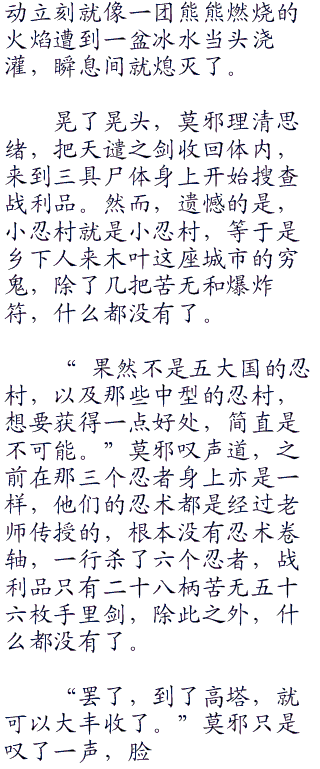 动立刻就像一团熊熊燃烧的
火焰遭到一盆冰水当头浇
灌，瞬息间就熄灭了。
晃了晃头，莫邪理清思
绪，把天谴之剑收回体内，
来到三具尸体身上开始搜查
战利品。然而，遗憾的是，
小忍村就是小忍村，等于是
乡下人来木叶这座城市的穷
鬼，除了几把苦无和爆炸
符，什么都没有了。
“果然不是五大国的忍
村，以及那些中型的忍村，
想要获得一点好处，简直是
不可能。”莫邪叹声道，之
前在那三个忍者身上亦是一
样，他们的忍术都是经过老
师传授的，根本没有忍术卷
轴，一行杀了六个忍者，战
利品只有二十八柄苦无五十
六枚手里剑，除此之外，什
么都没有了。
“罢了，到了高塔，就
可以大丰收了。”莫邪只是
叹了一声，脸